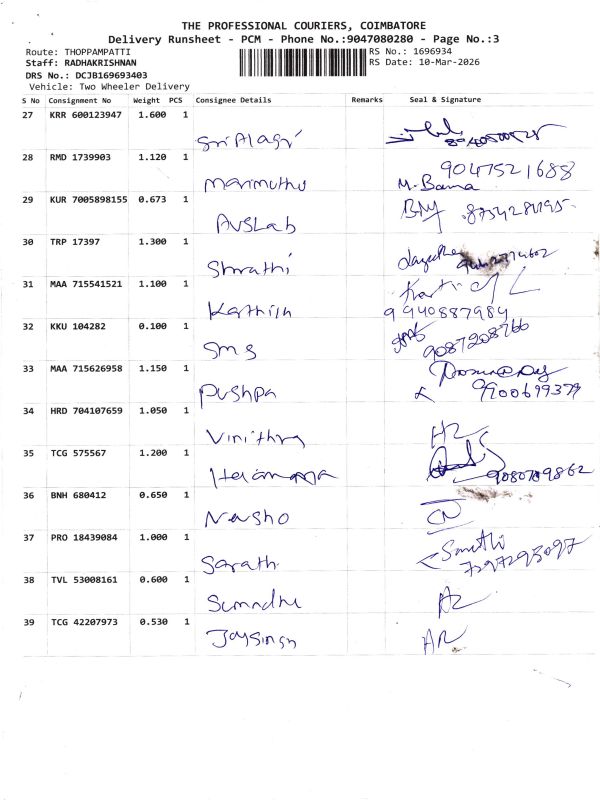 THE PROFESSIONAL COURIERS, COIMBATORE
Delivery Runsheet - PCM - Phone No.:9047080280 - Page No.:3
Route: THOPPAMPATTI
RS No.: 1696934
Staff: RADHAKRISHNAN
RS Date: 10-Mar-2026
DRS No.: DCJB169693403
Vehicle: Two Wheeler Delivery
S No Consignment No Weight PCS Consignee Details Remarks Seal & Signature
27 KRR 600123947 1.600 1
Sri Alagri
28 RMD 1739903 1.120 1
9047521688
Marimuthu M. Bama
29 KUR 7005898155 0.673 1
AVSLab
30 TRP 17397 1.300 1
Shrathi
31 MAA 715541521 1.100 1
Karthish 9940887984
32 KKU 104282 0.100 1
Sms 9087208766
33 MAA 715626958 1.150 1
Pushpa 9900699379
34 HRD 704107659 1.050 1
Vinithra
35 TCG 575567 1.200 1
9080709862
36 BNH 680412 0.650 1
Nasho CN
37 PRO 18439084 1.000 1
Sarath 7297295097
38 TVL 53008161 0.600 1
39 TCG 42207973 0.530 1
Jaysingh